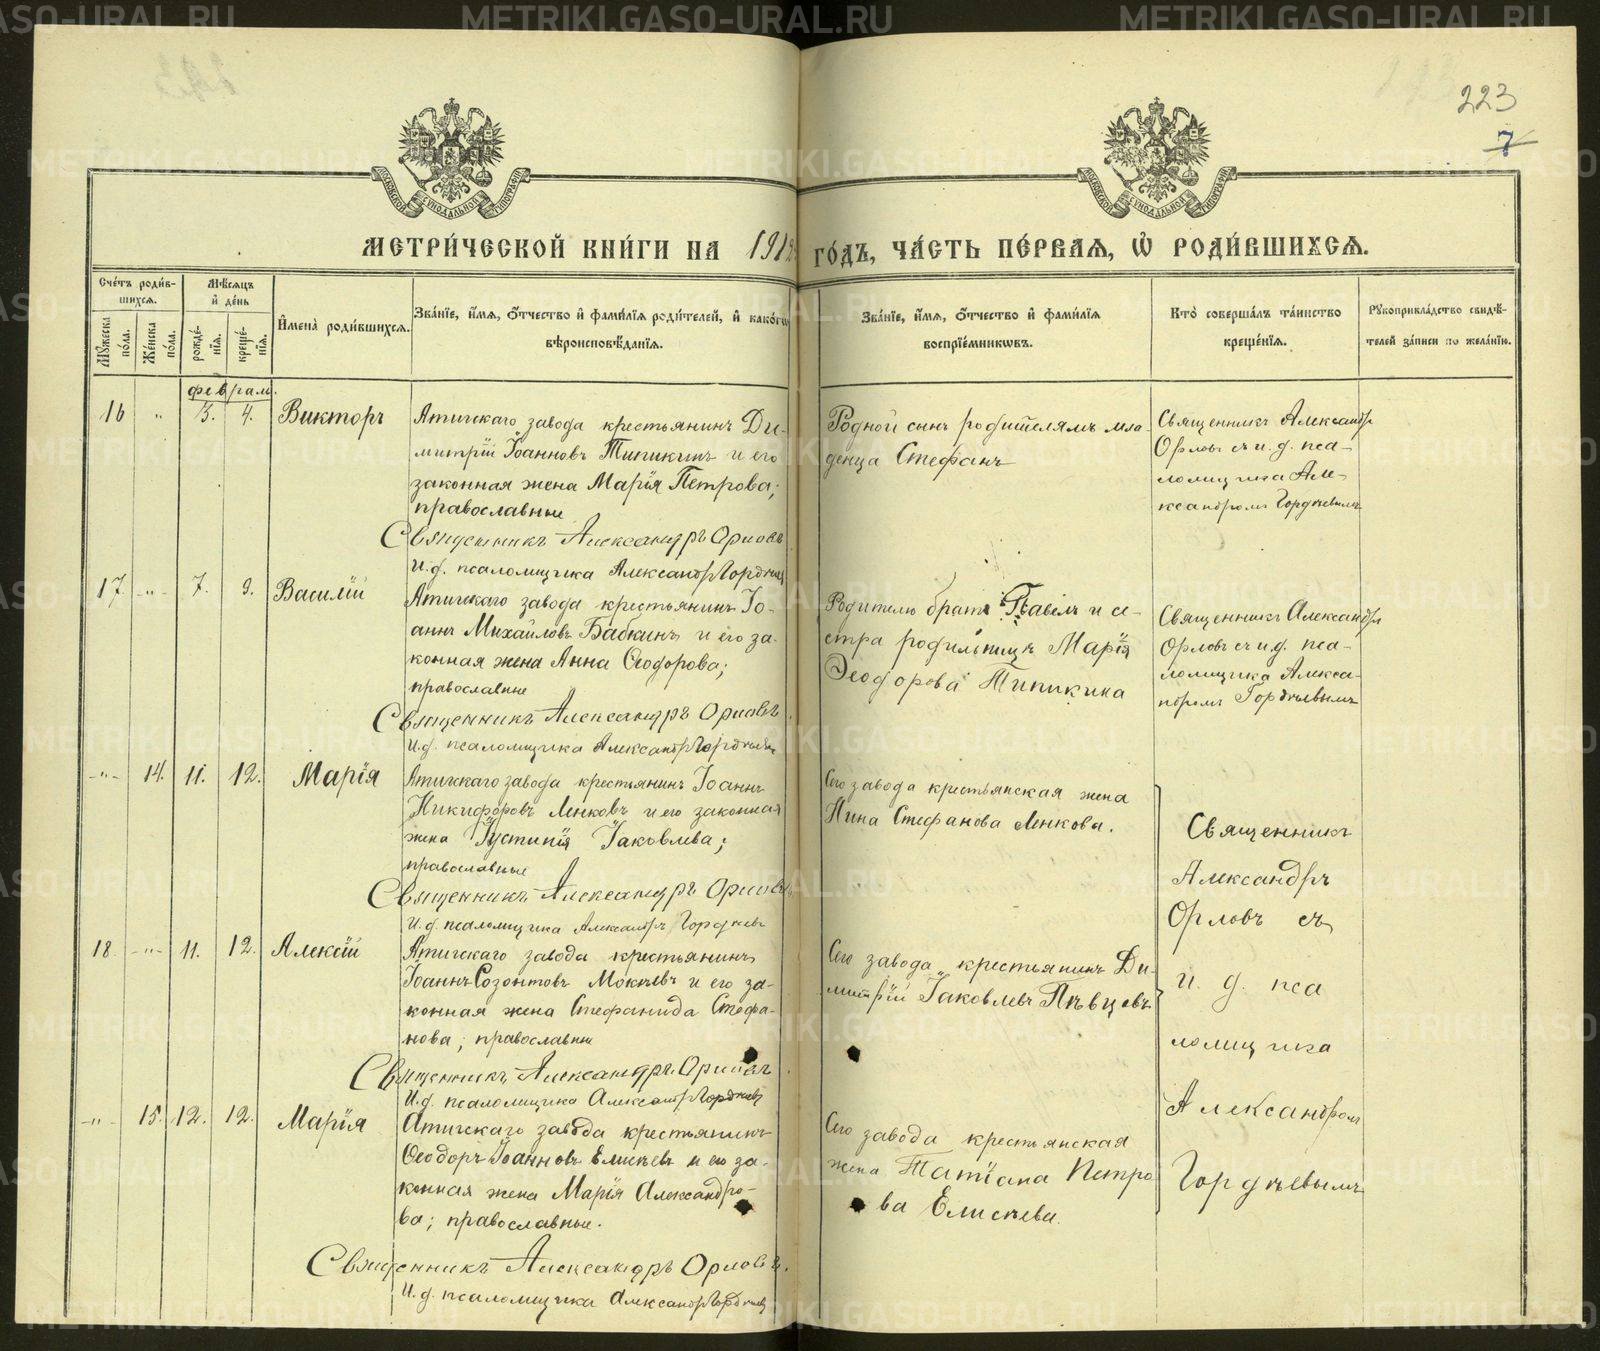 METRIKI.GASO-URAL.RU
223
7
МОСКОВСКОЙ СѴНОДАЛЬНОЙ ТИПОГРАФІИ
МОСКОВСКОЙ СѴНОДАЛЬНОЙ ТИПОГРАФІИ
МЕТРИ́ЧЕСКОЙ КНИ́ГИ НА 1912 ГО́ДЪ, ЧА́СТЬ ПЕ́РВАЯ, Ѡ҆ РОДИ́ВШИХСЯ.
Сче́тъ роди́в-
шихся.
Мꙋ́жеска по́ла.
Же́нска по́ла.
Мѣ́сяцъ
и҆ де́нь
рожде́-
нїя.
креще́-
нїя.
И҆мена̀ роди́вшихся.
Зва́нїе, и҆́мя, ѻ҆́тчество и҆ фами́лїя роди́телей, и҆ како́гѡ
вѣроисповѣ́данїя.
Зва́нїе, и҆́мя, ѻ҆́тчество и҆ фами́лїя
воспрїе́мникѡвъ.
Кто̀ соверша́лъ та́инство
креще́нїя.
Рꙋкоприкла́дство свидѣ́-
телей за́писи по жела́нїю.
февраль.
16 " 3. 4. Викторъ
Атигскаго завода крестьянинъ Ди-
митрій Іоанновъ Типикинъ и его
законная жена Марія Петрова;
православные
Родной сынъ родителямъ мла-
денца Стефанъ
Священникъ Александръ
Орловъ съ и. д. пса-
ломщика Але-
ксандромъ Гордѣевымъ
Священникъ Александръ Орловъ
И. д. псаломщика Александръ Гордѣевъ
17. -"- 7. 9. Василій
Атигскаго завода крестьянинъ Іо-
аннъ Михайловъ Бабкинъ и его за-
конная жена Анна Ѳеодорова;
православные
Родителю братъ Павелъ и се-
стра родильницы Марія
Ѳеодорова Типикина
Священникъ Александръ
Орловъ съ и. д. пса-
ломщика Алекса-
ндромъ Гордѣевымъ
Священникъ Александръ Орловъ
И. д. псаломщика Александръ Гордѣевъ
-"- 14. 11. 12. Марія
Атигскаго завода крестьянинъ Іоаннъ
Никифоровъ Ленковъ и его законная
жена Іустинія Іаковлева;
православные
Сего завода крестьянская жена
Нина Стефанова Ленкова.
Священникъ Александръ Орловъ
И. д. псаломщика Александръ Гордѣевъ
18 -"- 11. 12. Алексій
Атигскаго завода крестьянинъ
Іоаннъ Созонтовъ Мокѣевъ и его за-
конная жена Стефанида Стефа-
нова; православные
Сего завода крестьянинъ Ди-
митрій Іаковлевъ Пѣвцевъ
Священникъ Александръ Орловъ
И. д. псаломщика Александръ Гордѣевъ
-"- 15. 12. 12. Марія
Атигскаго завода крестьянинъ
Ѳеодоръ Іоанновъ Елисѣевъ и его за-
конная жена Марія Александро-
ва; православные.
Сего завода крестьянская
жена Татіана Петро
ва Елисѣева.
Священникъ
Александръ
Орловъ съ
и. д. пса
ломщика
Александромъ
Гордѣевымъ
Священникъ Александръ Орловъ.
И. д. псаломщика Александръ Гордѣевъ